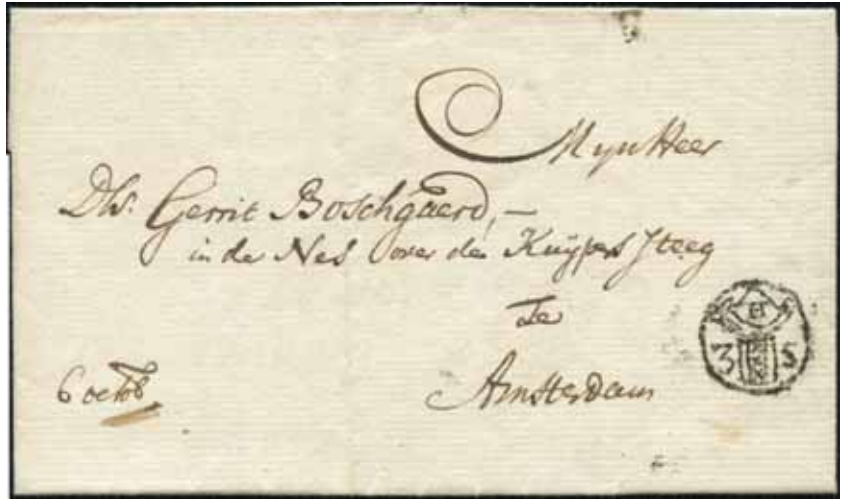 Myn Heer
Dhr. Gerrit Boschgaerd, —
in de Nes over den Kuÿpers steeg
Te
Amsterdam
6 octob
H
3 S